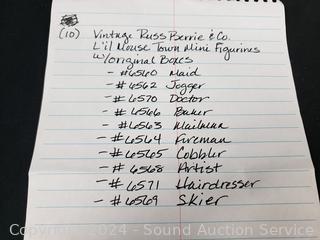 (10) Vintage Russ Berrie & Co.
L'il Mouse Town Mini Figurines
w/original Boxes
- #6560 Maid
- #6562 Jogger
- #6570 Doctor
- #6566 Baker
- #6563 Mailman
- #6564 Fireman
- #6565 Cobbler
- #6568 Artist
- #6571 Hairdresser
- #6569 Skier
Copyright 2024 - Sound Auction Service